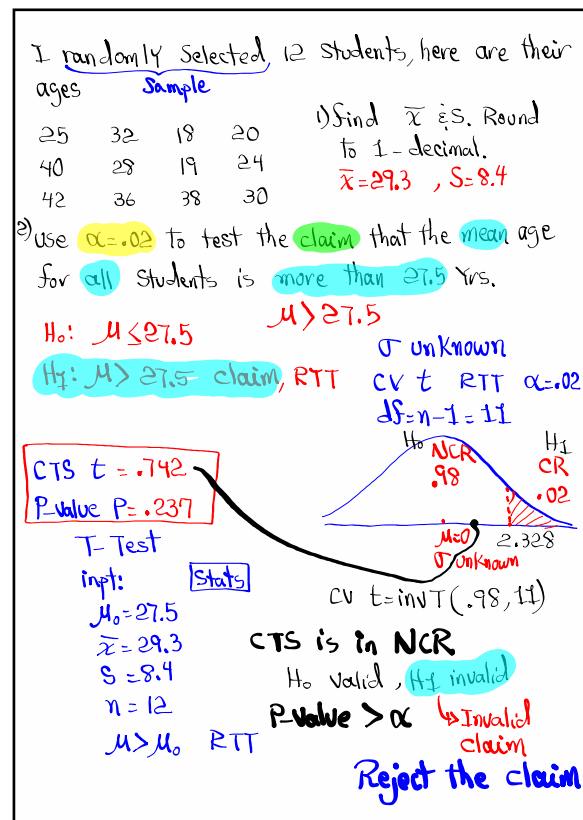 I randomly selected 12 students, here are their
ages Sample
25 32 18 20
40 28 19 24
42 36 38 30
1) find x̄ & S. Round
to 1-decimal.
x̄=29.3 , S=8.4
2) Use α=.02 to test the claim that the mean age
for all students is more than 27.5 Yrs.
H₀: μ≤27.5
μ>27.5
H1: μ>27.5 claim, RTT
σ unknown
CV t RTT α=.02
df=n-1=11
CTS t =.742
P-value P=.237
H₀ NCR H1
.98 CR
.02
μ=0 2.328
σ unknown
CV t=invT(.98,11)
T-Test
inpt: Stats
μ₀=27.5
x̄=29.3
S=8.4
n=12
μ>μ₀ RTT
CTS is in NCR
H₀ valid, H1 invalid
P-value > α
↳Invalid
claim
Reject the claim